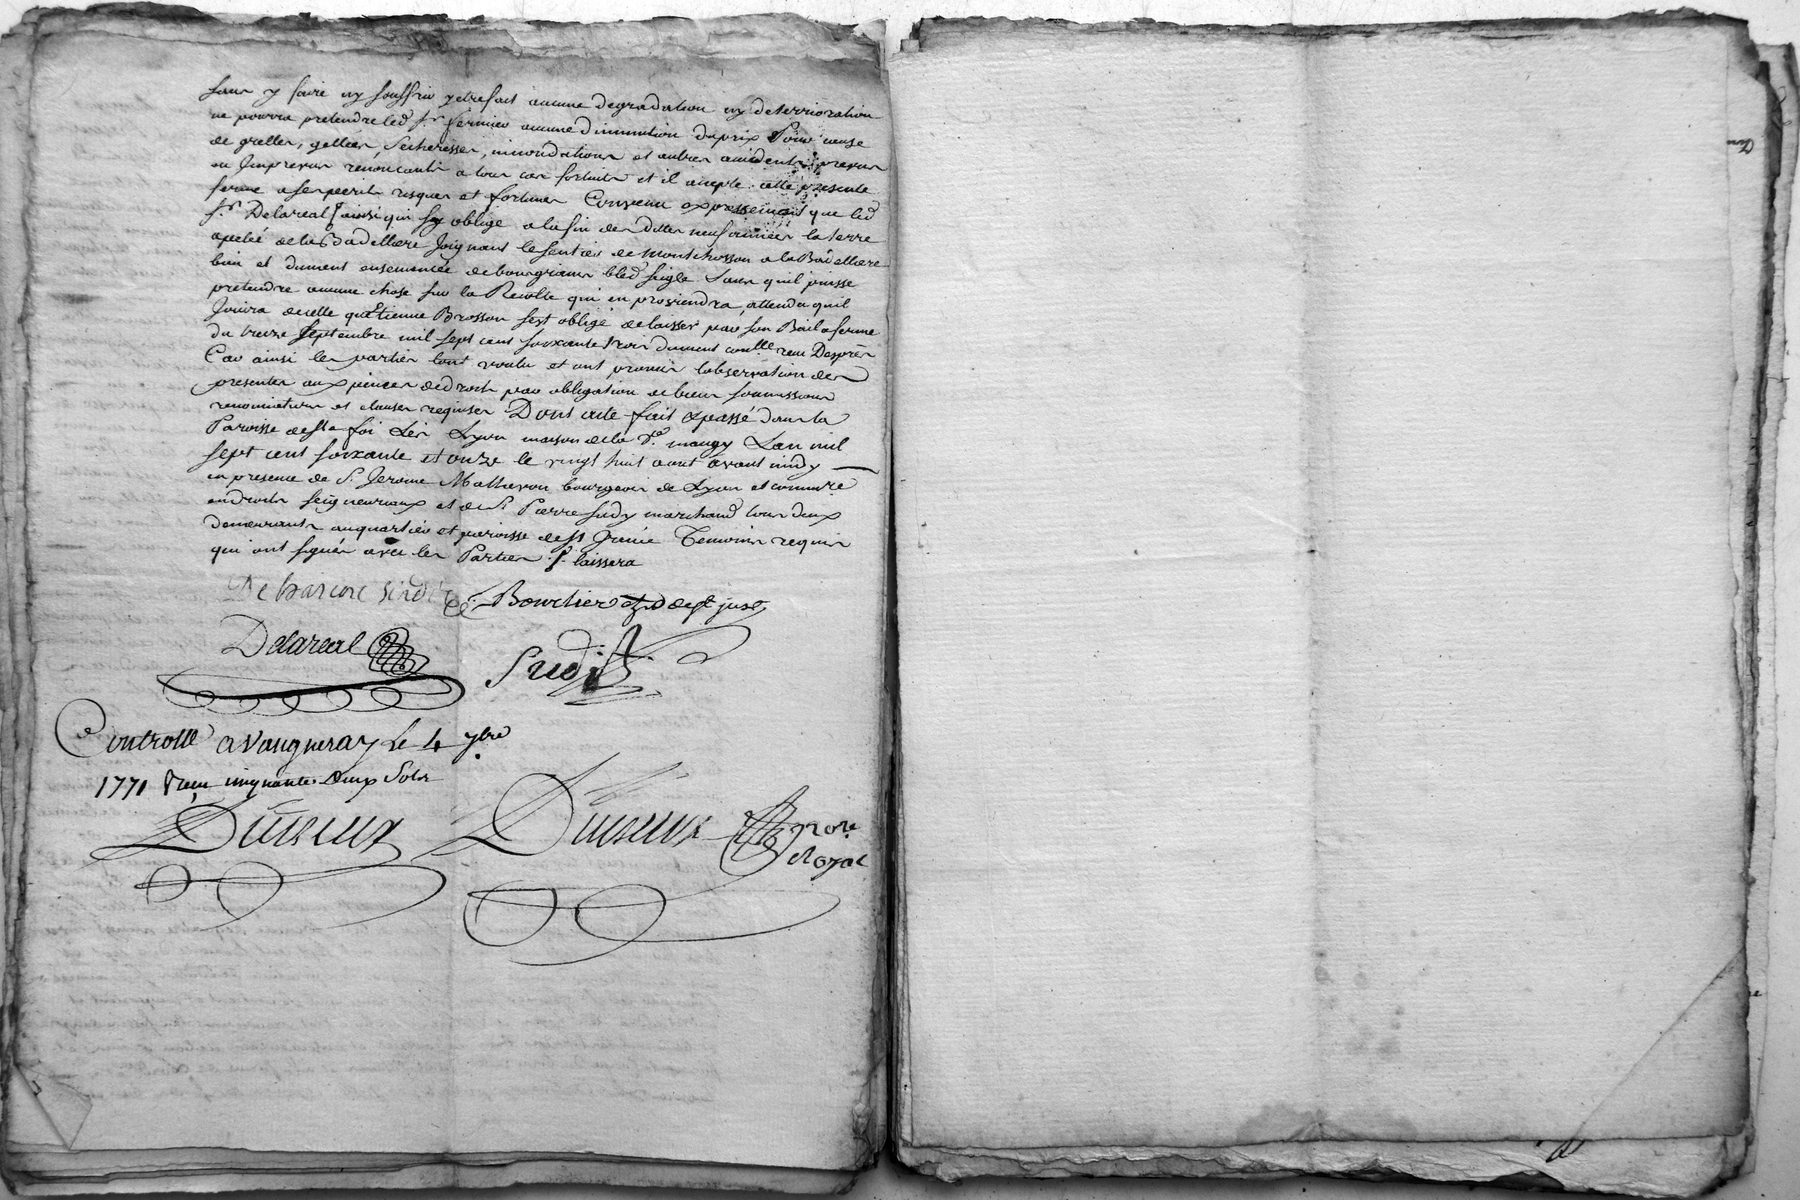 sans y faire ny souffrir y etre fait aucune degradation ny deterrioration
ne pourra pretendre led sr fermier aucune diminution du prix pour cause
de grelles, gellées, secheresses, innondations et autres accidents prevus
ou imprevus renoncants a tous cas fortuits et il accepte cette presente
ferme a ses perils risques et fortunes Convenu expressement que led
sr Delareal ainsi qui sy oblige a la fin des dittes neuf années la terre
apellée de la Badelliere joignant le sentier de montchosson a la Badelliere
bien et dument ensemencée de bons grains bled seigle sans quil puisse
pretendre aucune chose sur la Recolte qui en proviendra, attendu quil
jouira de celle qu'Etienne Brosson sest obligé de laisser par son Bail a ferme
du treize septembre mil sept cent soixante trois dument conllé reçu Desprès
Car ainsi les parties lont voulu et ont promis lobservation des
presentes aux peines de droit par obligation de biens soumissions
renonciations et clauses requises Dont acte fait et passé dans la
Paroisse de ste foi Lès Lyon maison de la Ve maugy Lan mil
sept cent soixante et onze le vingt huit aout avant midy
en presence de S. Jerome Matheron bourgeois de Lyon et commre
en droits seigneuriaux et de sr Pierre sudy marchand tous deux
demeurants au quartier et paroisse de st Irenée Temoins requis
qui ont signés avec les Parties
laissera
Bourdier de st just
Delareal
Controllé a Vaugneray Le 4 7bre
1771 Reçu cinquante deux Sols
Duvieux
Duvieux nore
royal